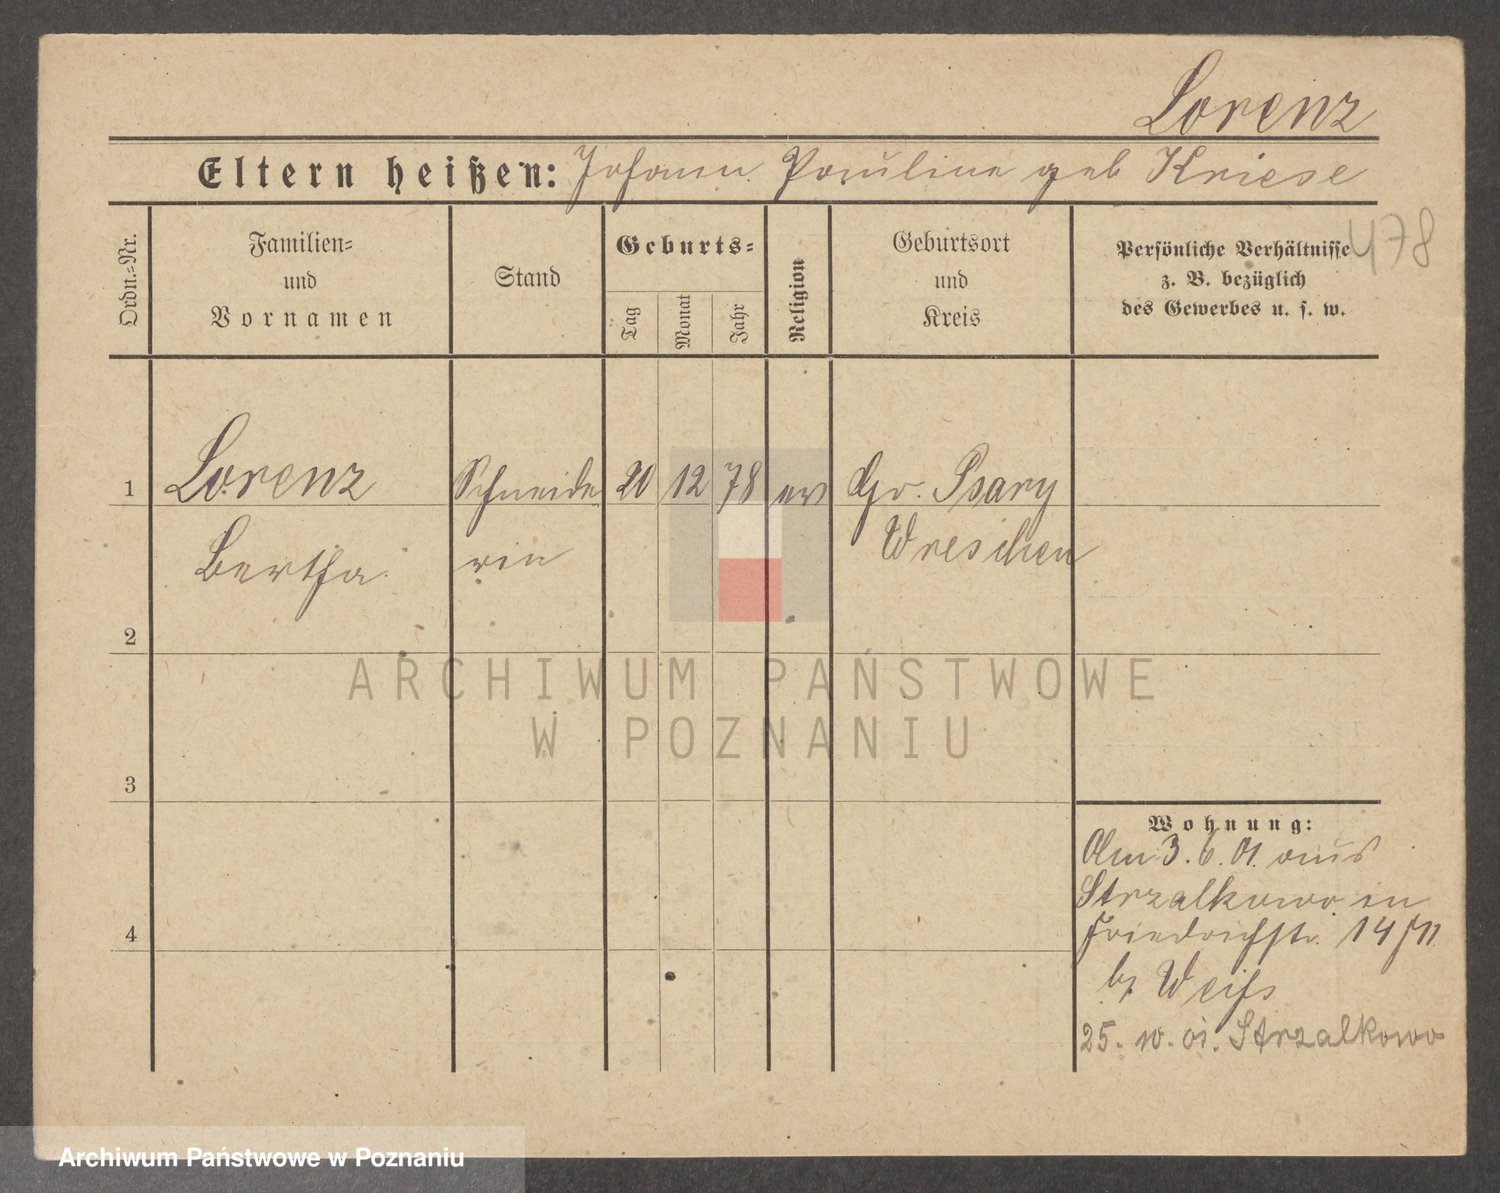 Lorenz
Eltern heißen: Johann Pauline geb Kriese
478
Ordn.=Nr.
Familien=
und
Vornamen
Stand
Geburts=
Tag
Monat
Jahr
Religion
Geburtsort
und
Kreis
Persönliche Verhältnisse
z. B. bezüglich
des Gewerbes u. s. w.
1
Lorenz
Schneide
20
12
78
ev
Gr. Psary
Bertha
rin
Wreschen
2
ARCHIWUM PAŃSTWOWE
W POZNANIU
3
Wohnung:
Am 3. 6. 01. aus
Strzalkowo in
4
Friedrichstr. 14/II
bz Weiſs
25. 10. 01. Strzalkowo
Archiwum Państwowe w Poznaniu